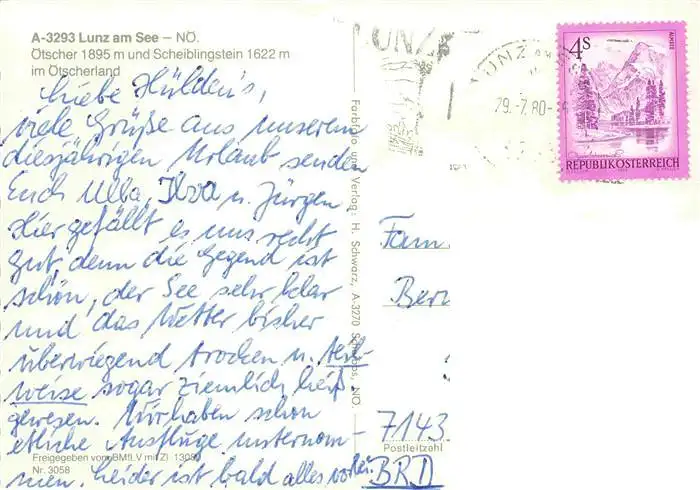 A-3293 Lunz am See – NÖ.
Ötscher 1895 m und Scheiblingstein 1622 m
im Ötscherland
Liebe Hülden's,
viele Grüße aus unserem
diesjährigen Urlaub senden
Euch Ulla, Ilva u. Jürgen,
Hier gefällt es uns recht
gut denn die Gegend ist
schön, der See sehr klar
und das Wetter bisher
überwiegend trocken u. teil-
weise sogar ziemlich heiß
gewesen. Wir haben schon
etliche Ausflüge unternom-
men. Leider ist bald alles vorbei.
Freigegeben vom BMfLV mit Zl 1308
Nr. 3058
Farbfoto und Verlag: H. Schwarz, A-3270 NÖ.
LUNZ
LUNZ AM
29.-7.80-
4 S
ALMSEE
REPUBLIK ÖSTERREICH
Fam
Bern
7143
Postleitzahl
BRD